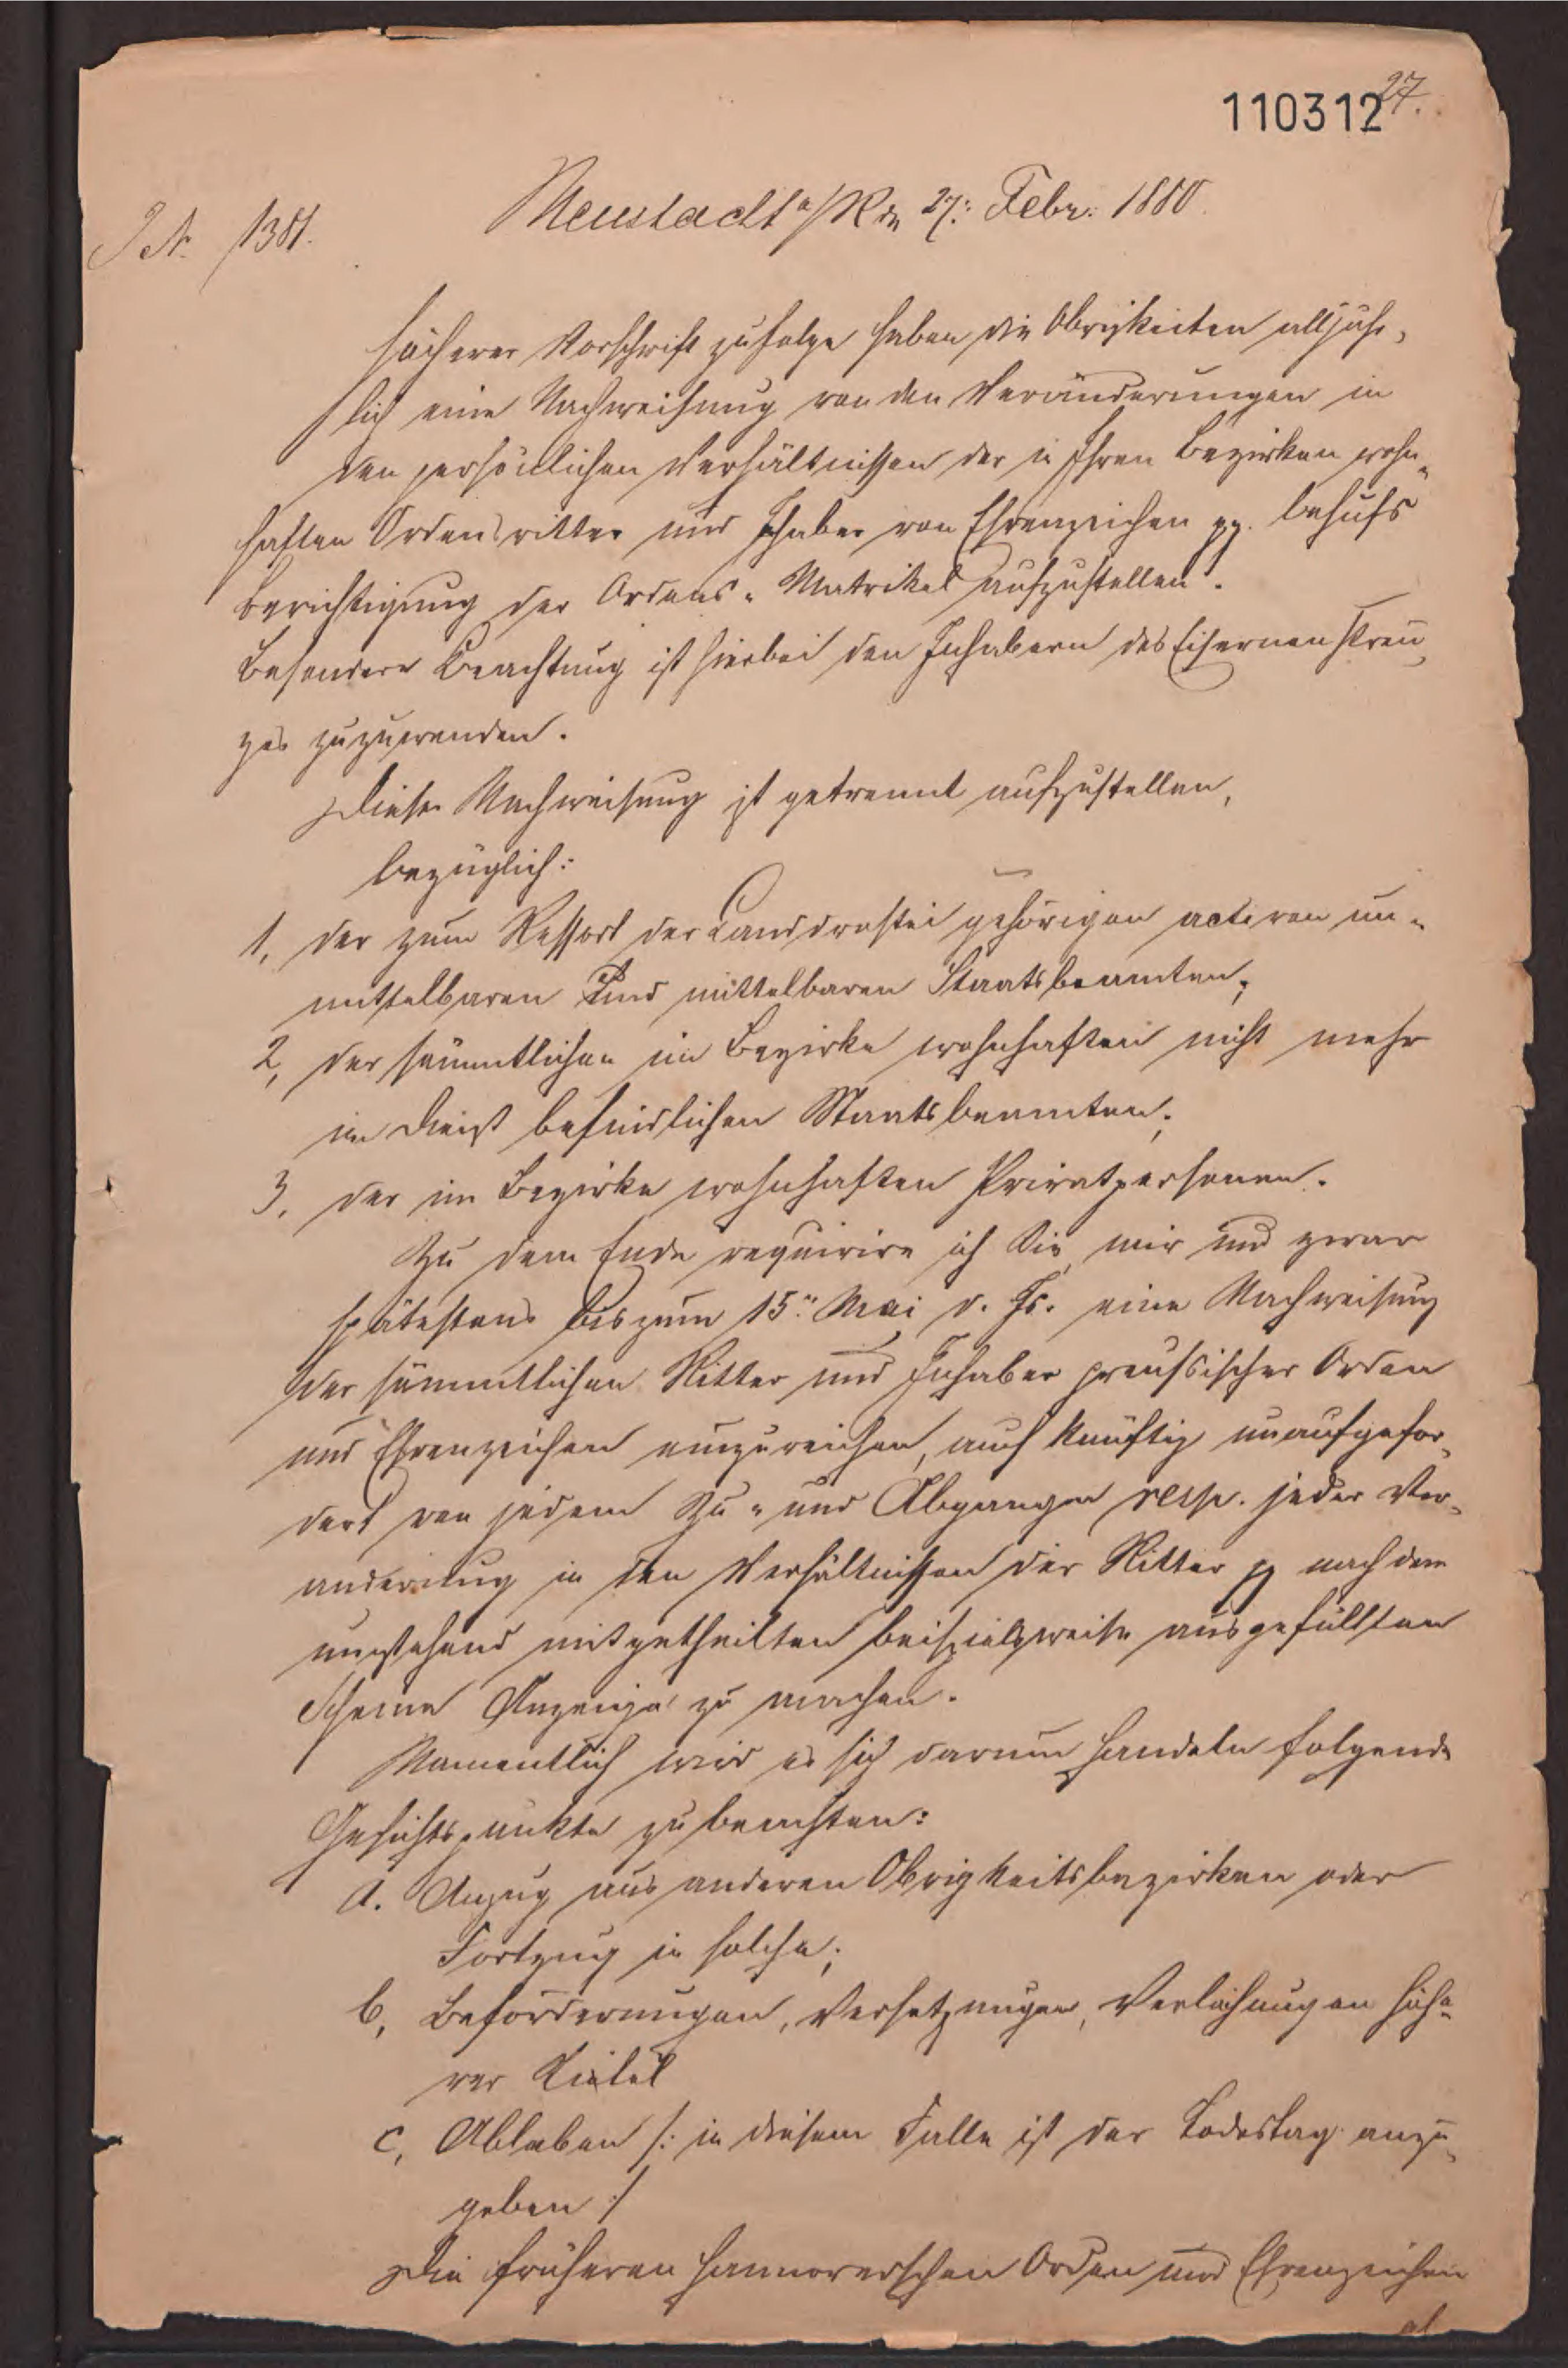 27.
110312
J. N. 1381.
Neustadt a/R den 27. Febr. 1880.
Höherer Vorschrift zufolge haben die Obrigkeiten alljähr-
lich eine Nachweisung von den Veränderungen in
den persönlichen Verhältnissen der in Ihren Bezirken wohn-
haften Ordensritter und Inhaber von Ehrenzeichen pp. behufs
Berichtigung der Ordens-Matrikel aufzustellen.
Besondere Beachtung ist hierbei den Inhabern des Eisernen Kreu-
zes zuzuwenden.
Diese Nachweisung ist getrennt aufzustellen,
bezüglich:
1, der zum Ressort der Landdrostei gehörigen activen un-
mittelbaren und mittelbaren Staatsbeamten;
2, der sämmtlichen im Bezirke wohnhaften nicht mehr
im Dienst befindlichen Staatsbeamten;
3, der im Bezirke wohnhaften Privatpersonen.
Zu dem Ende requirire ich Sie, mir und zwar
spätestens bis zum 15ten Mai d. Js. eine Nachweisung
der sämmtlichen Ritter und Inhaber preußischer Orden
und Ehrenzeichen einzureichen, auch künftig unaufgefor-
dert von jedem Zu- und Abgangen resp. jeder Ver-
änderung in den Verhältnissen der Ritter pp nach dem
umstehend mitgetheilten beispielsweise ausgefüllten
Schema Anzeige zu machen.
Namentlich wird es sich darum handeln folgende
Gesichtspunkte zu beachten:
a. Anzug aus anderen Obrigkeitsbezirken oder
Fortzug in solche;
b, Beförderungen, Versetzungen, Verleihungen höhe-
rer Titel
c, Ableben /: in diesem Falle ist der Todestag anzu-
geben :/
Die früheren hannoverschen Orden und Ehrenzeichen